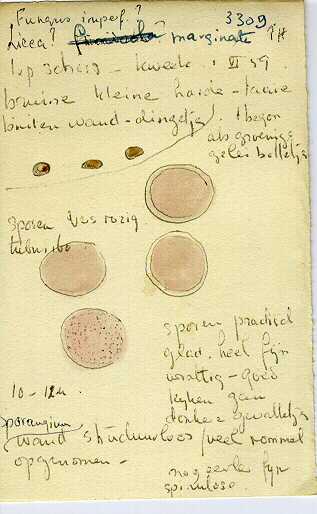 Fungus imperf. ?
3309
Licea? marginata
iep schors - kweek. 1 VI 59.
bruine kleine harde - taaie
buiten wand - dingetjes
1 begon
als groenige
gelei bolletjes
sporen vleesrozig
10 - 12 µ.
sporen practisch
glad. heel fijn
wrattig - goed
kijken geen
donkere gevalletjes
sporangium
wand structuurloos / veel rommel
opgenomen -
nog eerder fijn
spinulose